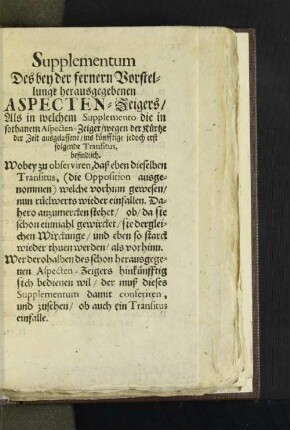 Supplementum
Des bey der fernern Vorstel-
lungt herausgegebenen
ASPECTEN-Zeigers/
Als in welchem Supplemento die in
sothanem Aspecten-Zeiger/wegen der Kürtze
der Zeit ausgelassene/ins künfftige jedoch erst
folgende Transitus,
befindlich.
Wobey zu observiren/daß eben dieselben
Transitus, (die Opposition ausge-
nommen) welche vorhinn gewesen/
nun rückwerts wieder einfallen. Da-
hero anzumercken stehet/ ob/da sie
schon einmahl gewircket/sie derglei-
chen Würckunge/und eben so starck
wieder thuen werden/als vorhinn.
Wer derohalben des schon herausgege-
nen Aspecten-Zeigers hinkünfftig
sich bedienen wil/ der muß dieses
Supplementum damit conferiren,
und zusehen/ ob auch ein Transitus
einfalle.